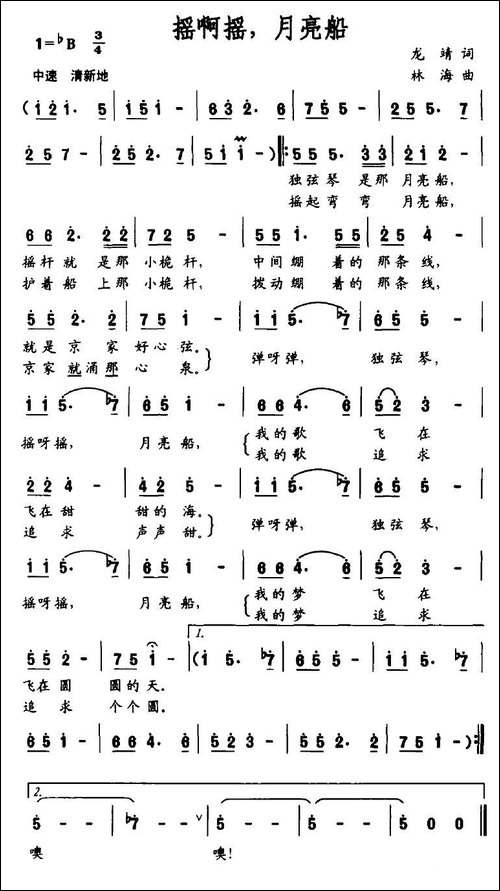 摇啊摇，月亮船
1=♭B 3/4
龙 靖 词
中速 清新地
林 海 曲
(1 2 1. 5 | 1 5 1 - | 6 3 2. 6 | 7 5 5 - | 2 5 5. 7 |
2 5 7 - | 2 5 2. 7 | 5 1 1 - ) |: 5 5 5. 3 3 | 2 1 2 - |
独弦琴 是那 月亮船，
摇起弯 弯 月亮船，
6 6 2. 2 2 | 7 2 5 - | 5 5 1. 5 5 | 2 5 4 - |
摇杆就 是那 小桅杆， 中间绷 着的 那条线，
护着船 上那 小桅杆， 拨动绷 着的 那条线，
5 5 2. 2 | 7 5 1 - | 1 1 5. ♭7 | 6 5 5 - |
就是京 家 好心弦。 弹呀弹， 独弦琴，
京家就涌那 心 泉。
1 1 5. ♭7 | 6 5 1 - | 6 6 4. 6 | 5 2 3 - |
摇呀摇， 月亮船， 我的歌 飞 在
我的歌 追 求
2 2 4 - | 2 4 2 5 | 1 1 5. ♭7 | 6 5 5 - |
飞在甜 甜的 海。 弹呀弹， 独弦琴，
追 求 声声 甜。
1 1 5. ♭7 | 6 5 1 - | 6 6 4. 6 | 5 2 3 - |
摇呀摇， 月亮船， 我的梦 飞 在
我的梦 追 求
1.
5 5 2 - | 7 5 1 - | (1 5. ♭7 | 6 5 5 - | 1 1 5. ♭7 |
飞在圆 圆的 天。
追 求 个个 圆。
6 5 1 - | 6 6 4. 6 | 5 2 3 - | 5 5 2. 2 | 7 5 1 - ) :|
2.
5 - - | ♭7 - - ∨ | 5 - - | 5 - - | 5 0 0 ||
噢 噢！